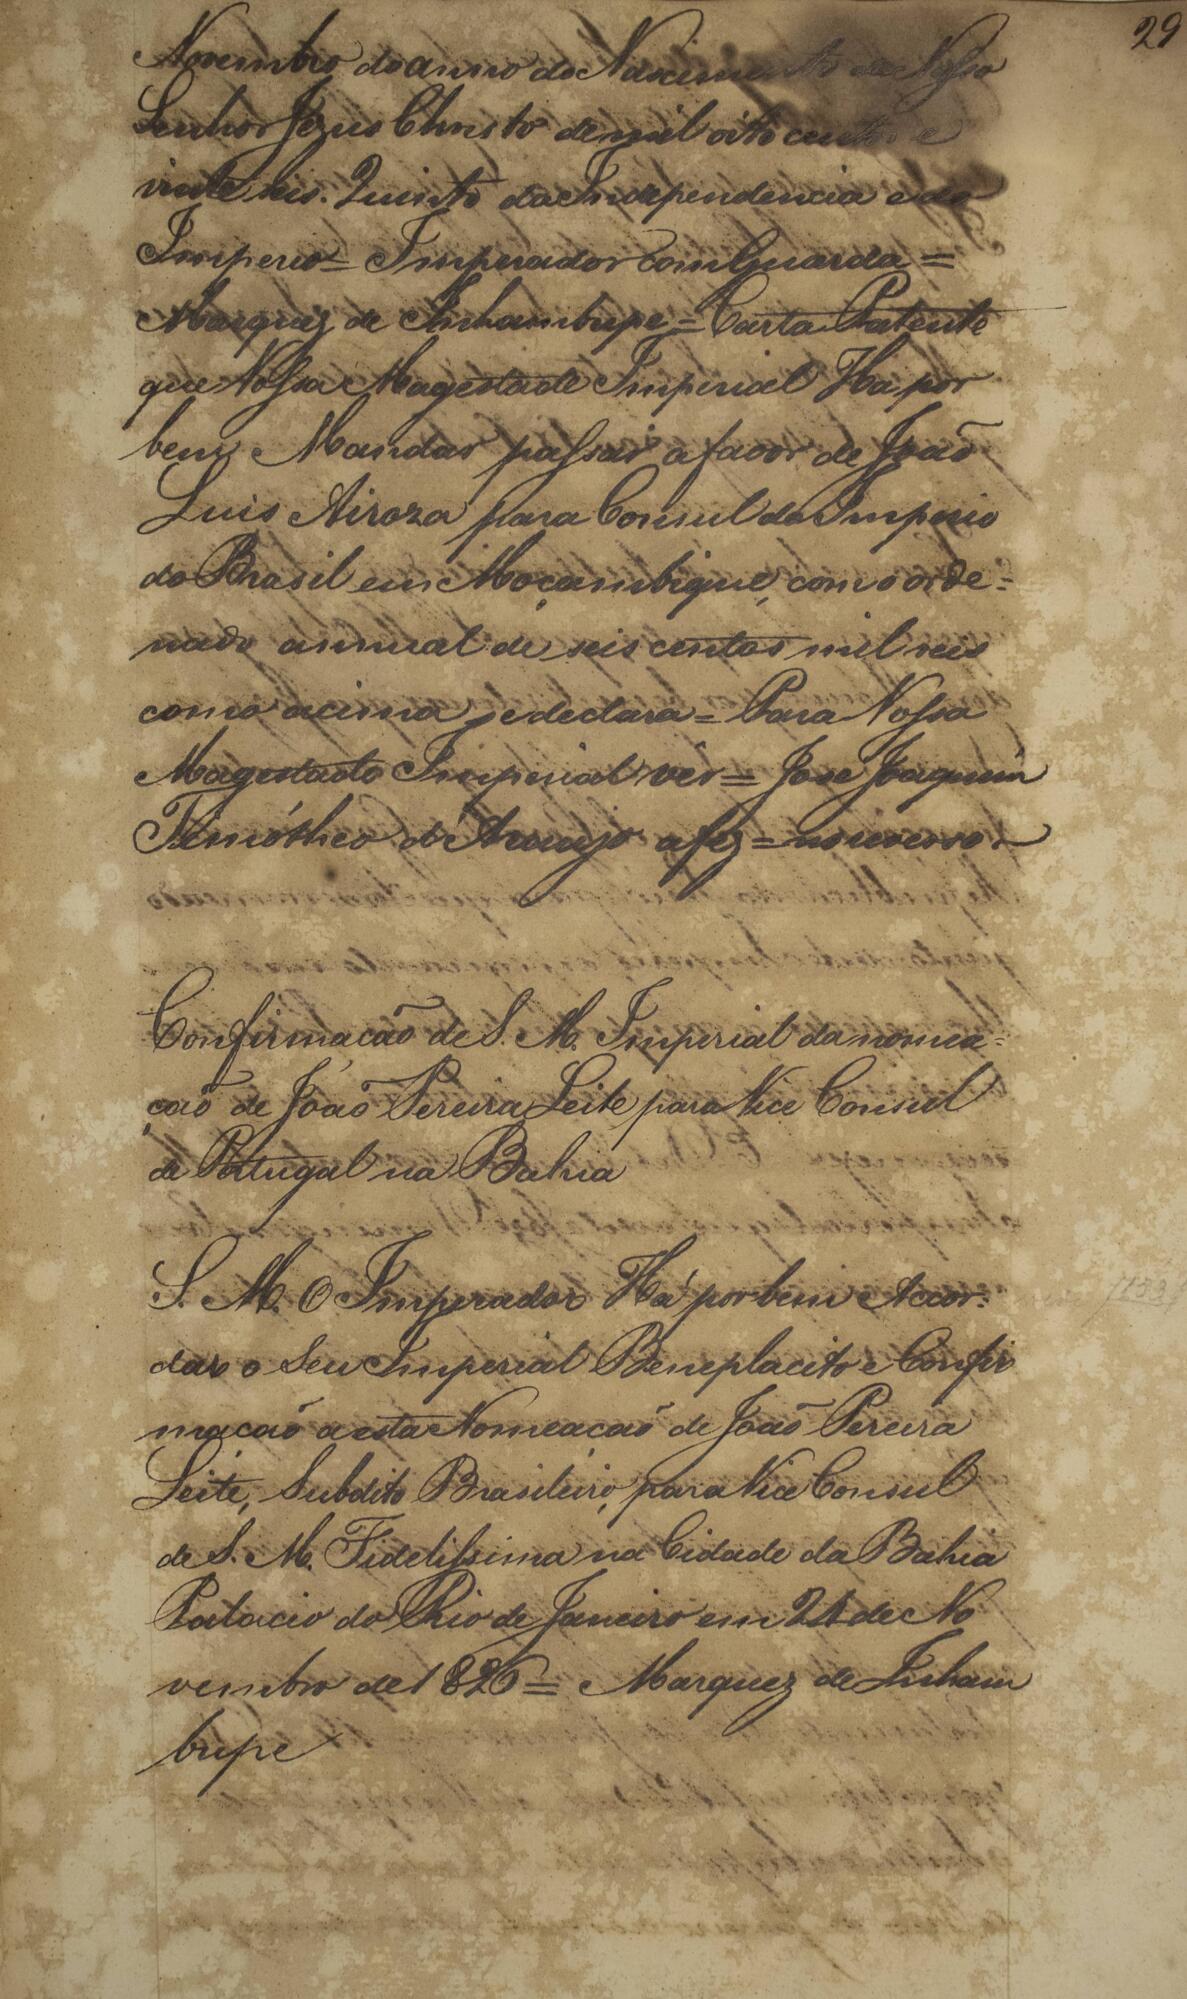 29
Novembro do anno do Nascimento de Nosso
Senhor Jezus Christo de mil oito centos e
vinte seis. Quinto da Independencia e do
Imperio = Imperador com Guarda =
Marquez de Inhambupe = Carta Patente
que Vossa Magestade Imperial Ha por
bem Mandar passar a favor de João
Luis Airoza para Consul do Imperio
do Brasil em Moçambique, com o orde=
nado annual de seis centos mil reis
como acima se declara = Para Vossa
Magestade Imperial ver = Jose Joaquim
Timótheo de Araujo a fez = no inverso
Confirmação de S. M. Imperial da nomea=
ção de João Pereira Leite para Vice Consul
de Portugal na Bahia
S. M. O Imperador Há por bem Accor=
dar o Seu Imperial Beneplacito e Confir
macaõ a esta Nomeacaõ de João Pereira
Leite, Subdito Brasileiro, para Vice Consul
de S. M. Fidelissima na Cidade da Bahia
Palacio do Rio de Janeiro em 24 de No
vembro de 1826 = Marquez de Inham
bupe